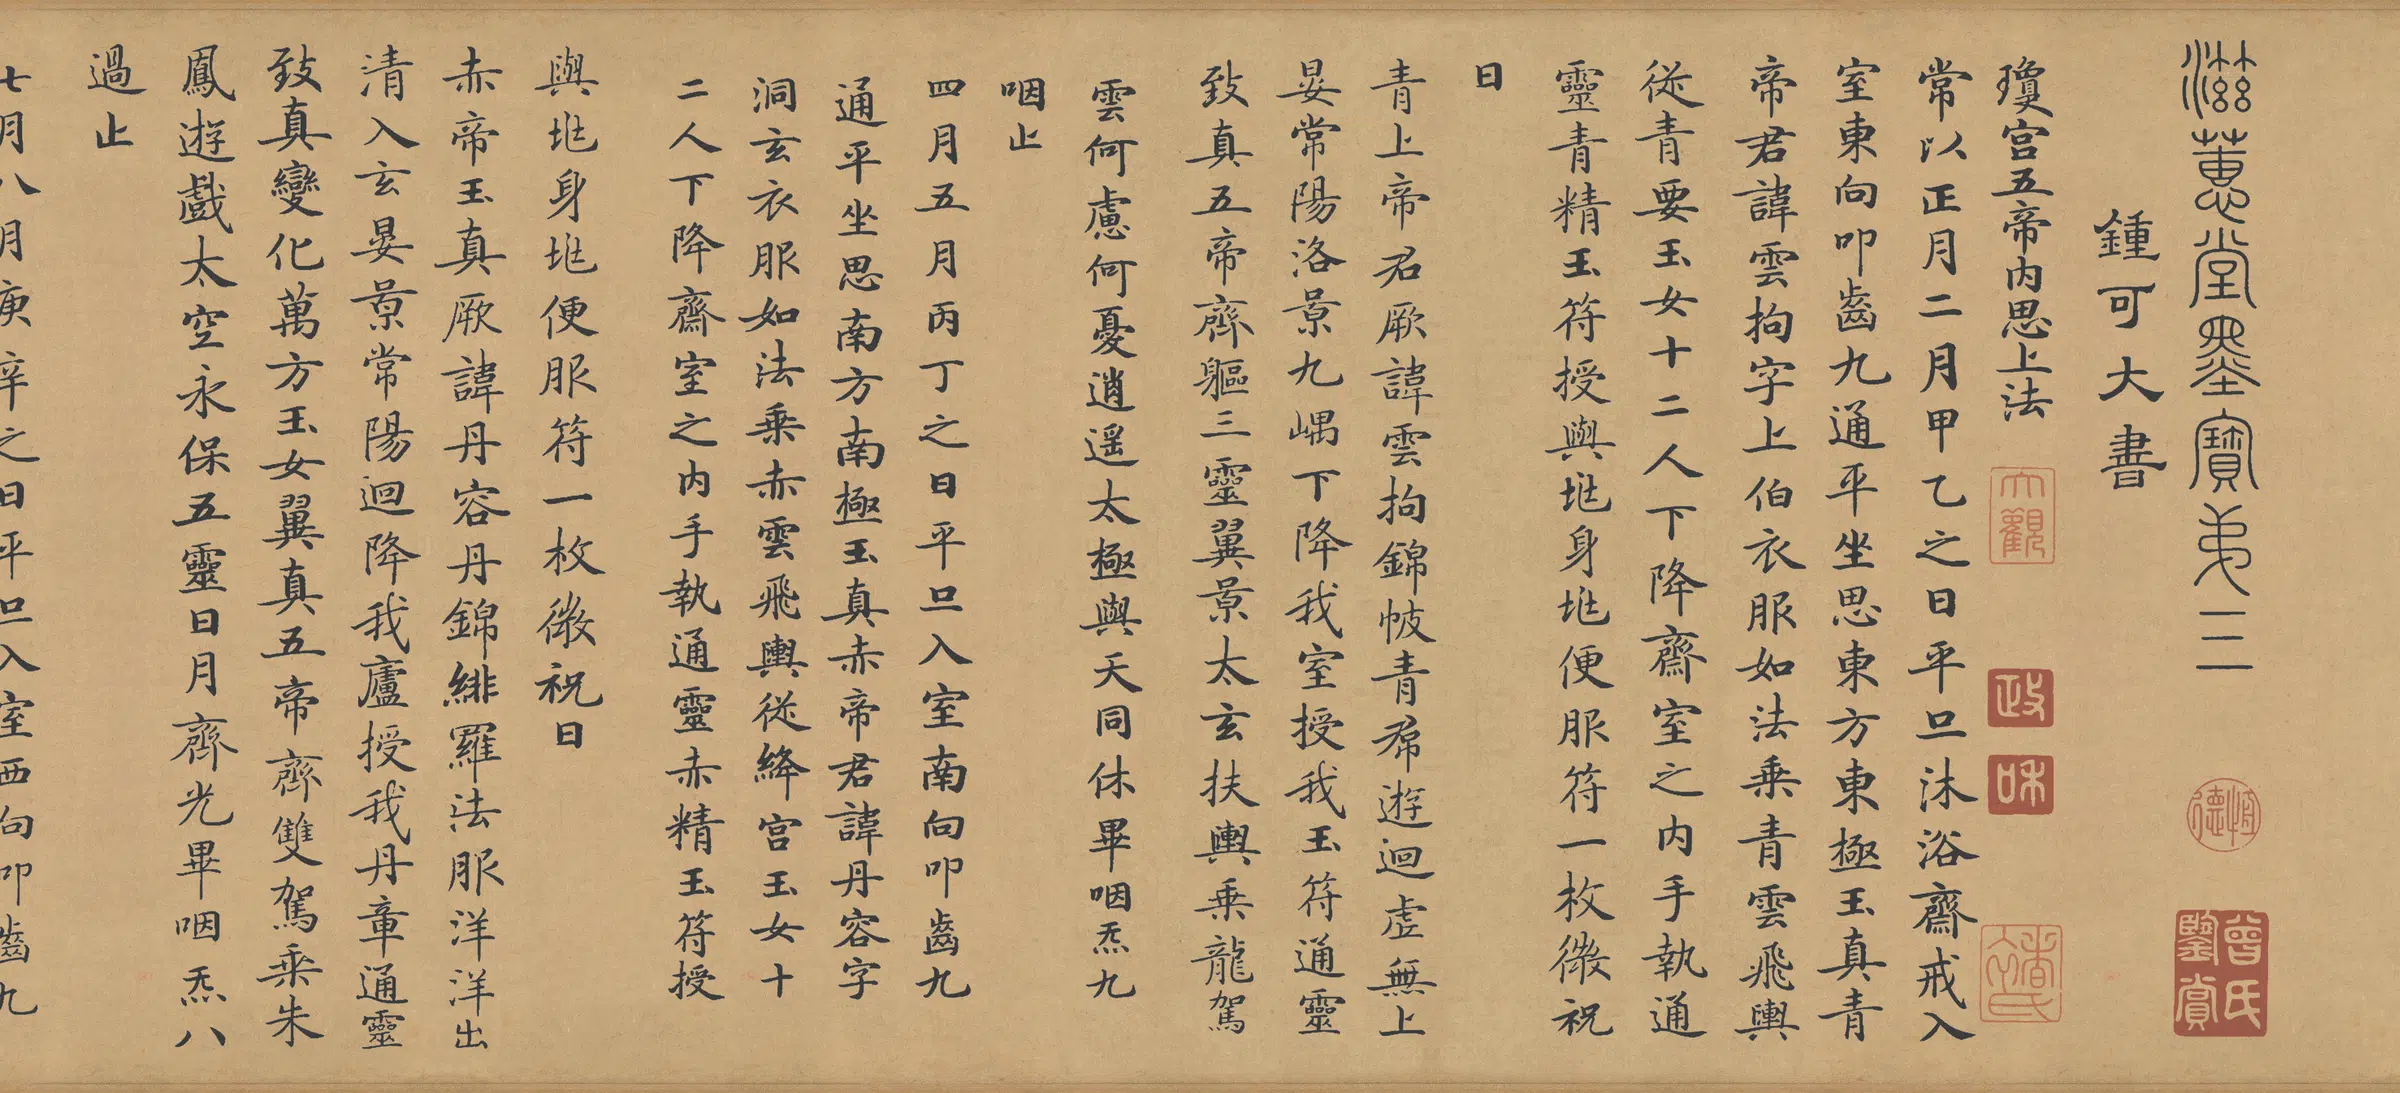 滋蕙堂墨寶弟三
鍾可大書
瓊宮五帝內思上法
常以正月二月甲乙之日平旦沐浴齋戒入
室東向叩齒九通平坐思東方東極玉真青
帝君諱雲拘字上伯衣服如法乘青雲飛輿
從青要玉女十二人下降齋室之內手執通
靈青精玉符授與兆身兆便服符一枚微祝
曰
青上帝君厥諱雲拘錦帔青帬遊迴虛無上
晏常陽洛景九嵎下降我室授我玉符通靈
致真五帝齊軀三靈翼景太玄扶輿乘龍駕
雲何慮何憂逍遙太極與天同休畢咽炁九
咽止
四月五月丙丁之日平旦入室南向叩齒九
通平坐思南方南極玉真赤帝君諱丹容字
洞玄衣服如法乘赤雲飛輿從絳宮玉女十
二人下降齋室之內手執通靈赤精玉符授
與兆身兆便服符一枚微祝曰
赤帝玉真厥諱丹容丹錦緋羅法服洋洋出
清入玄晏景常陽迴降我廬授我丹章通靈
致真變化萬方玉女翼真五帝齊雙駕乘朱
鳳遊戲太空永保五靈日月齊光畢咽炁八
過止
七月八月庚辛之日平旦入室西向叩齒九
大觀
政
和
恒德
曾氏鑒賞